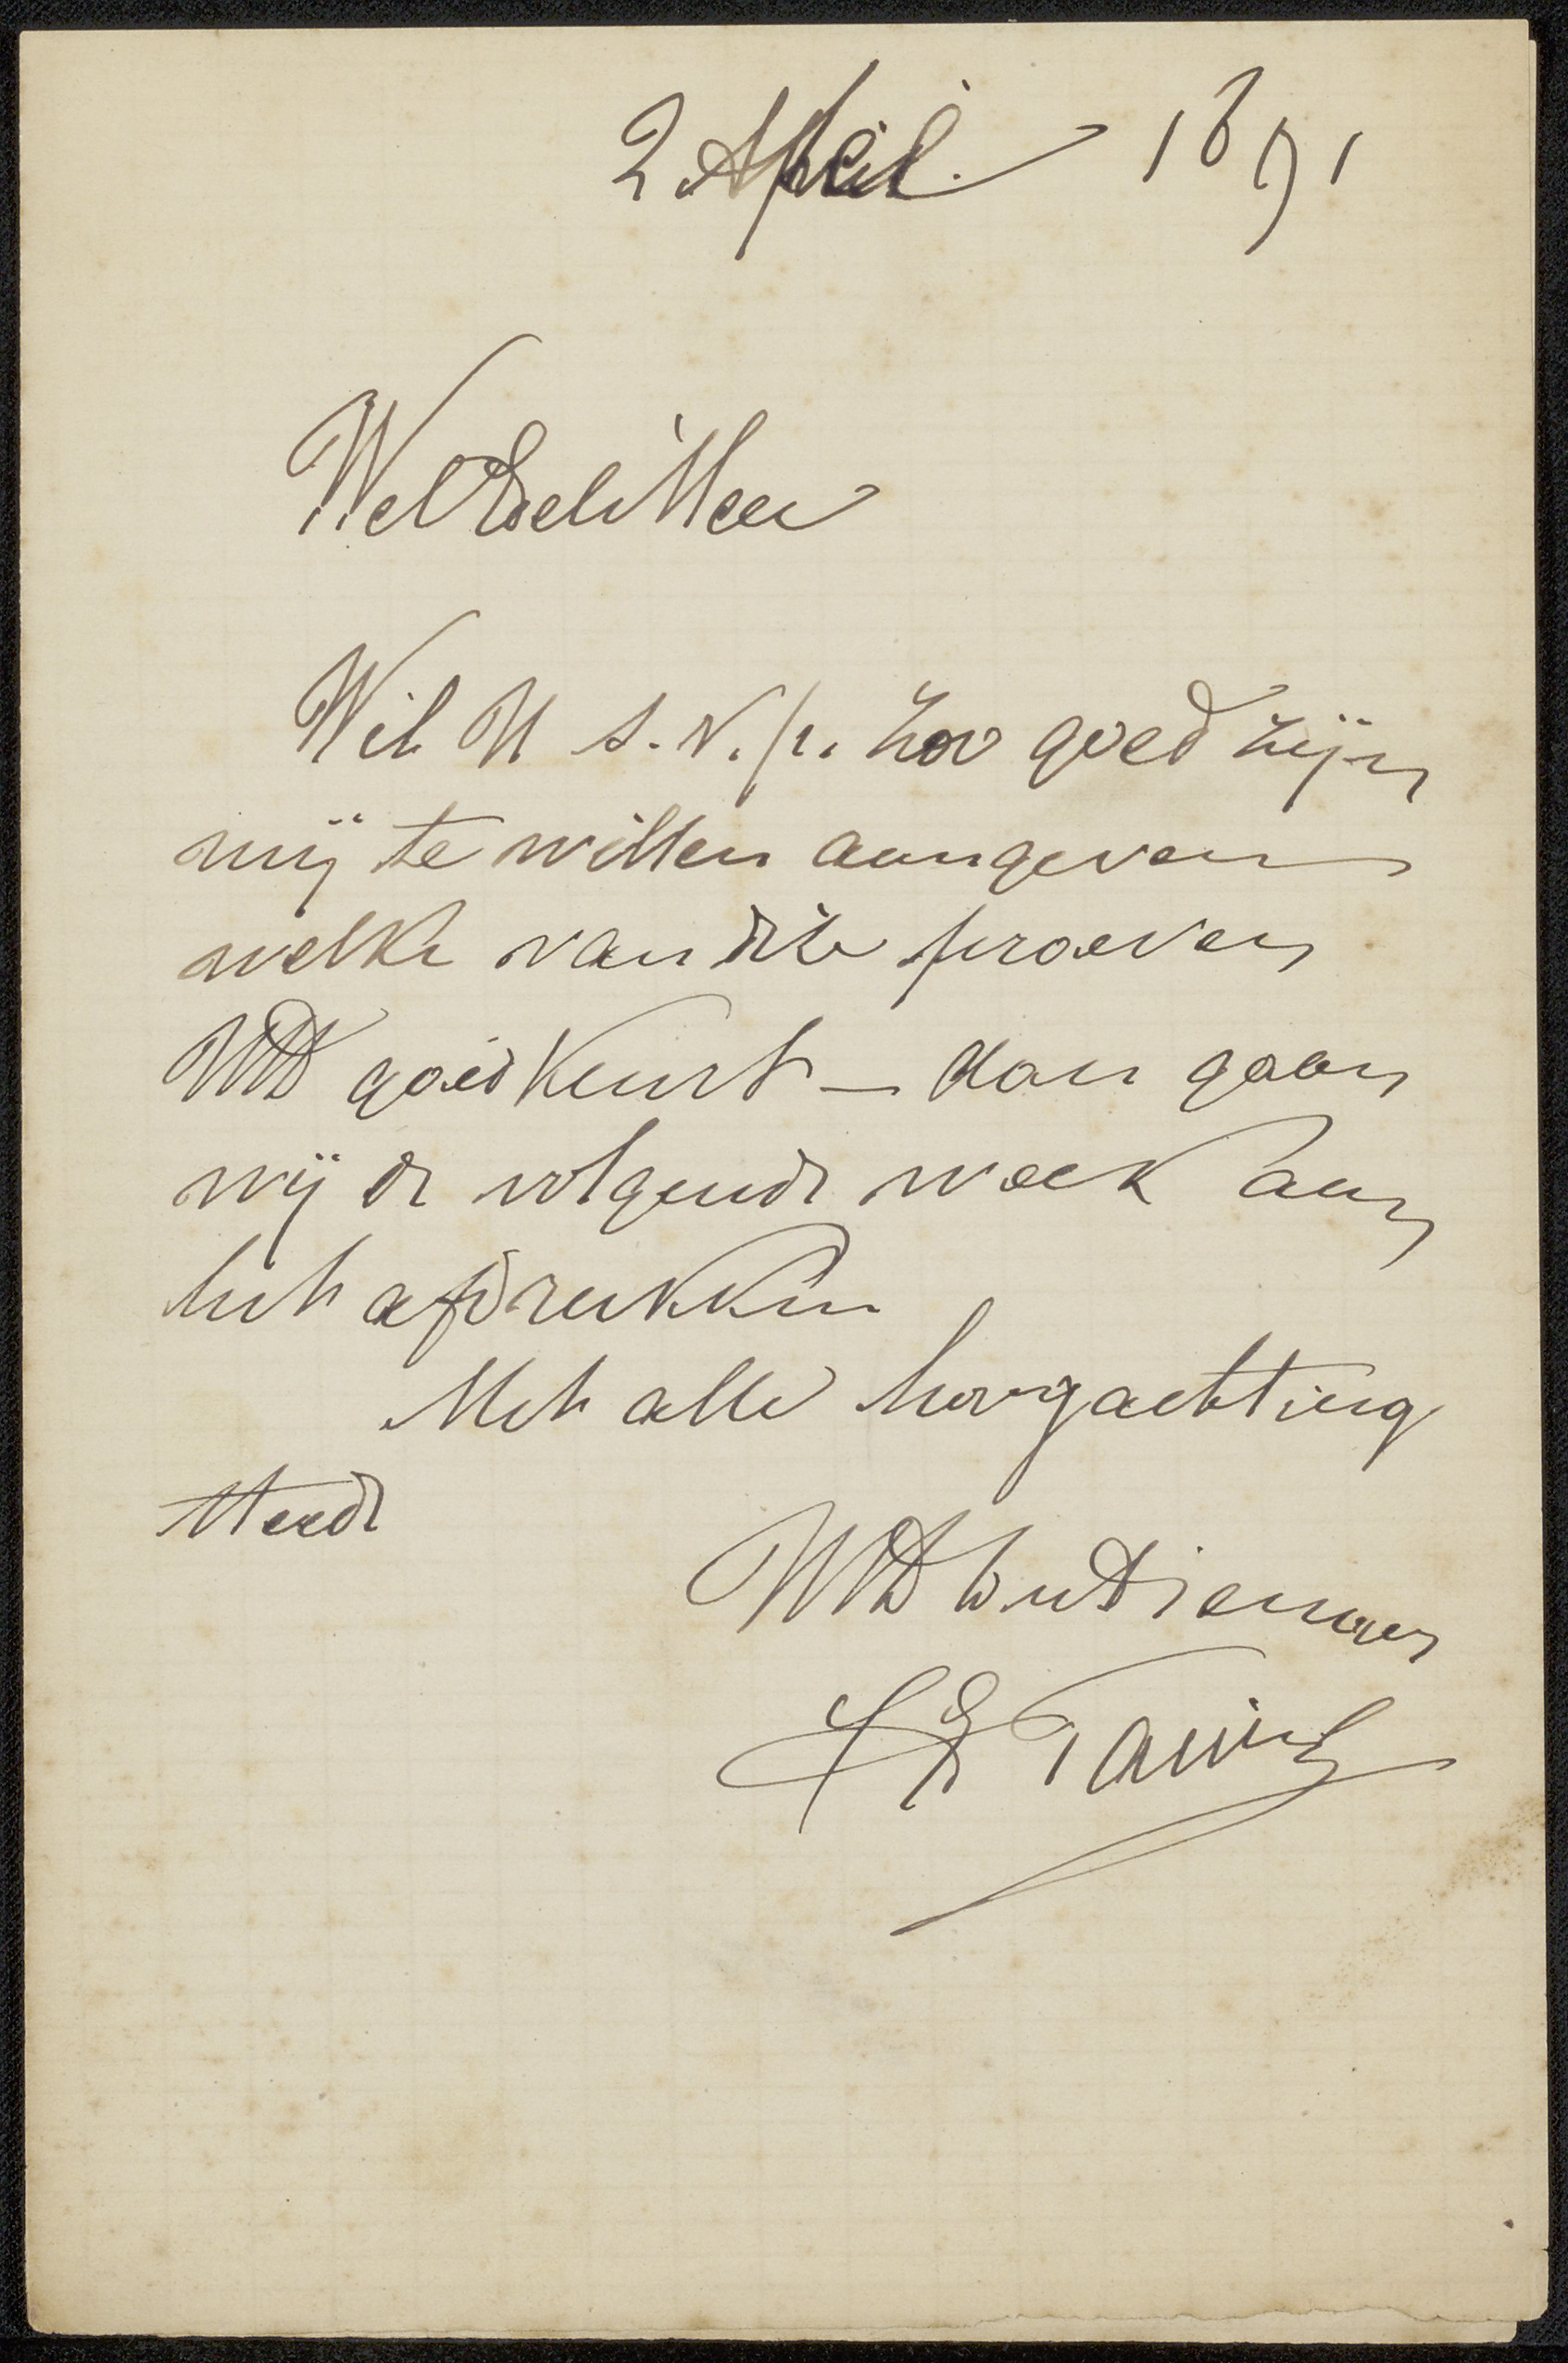 2 April. 1891
WelEdele Heer
Wil U s.v.p. zoo goed zijn
mij te willen aangeven
welke van die proeven
UEd goedkeurt – dan gaan
wij de volgende week aan
het afdrukken
Met alle hoogachting
Steeds
UEd dw Dienaar
CE Taurel